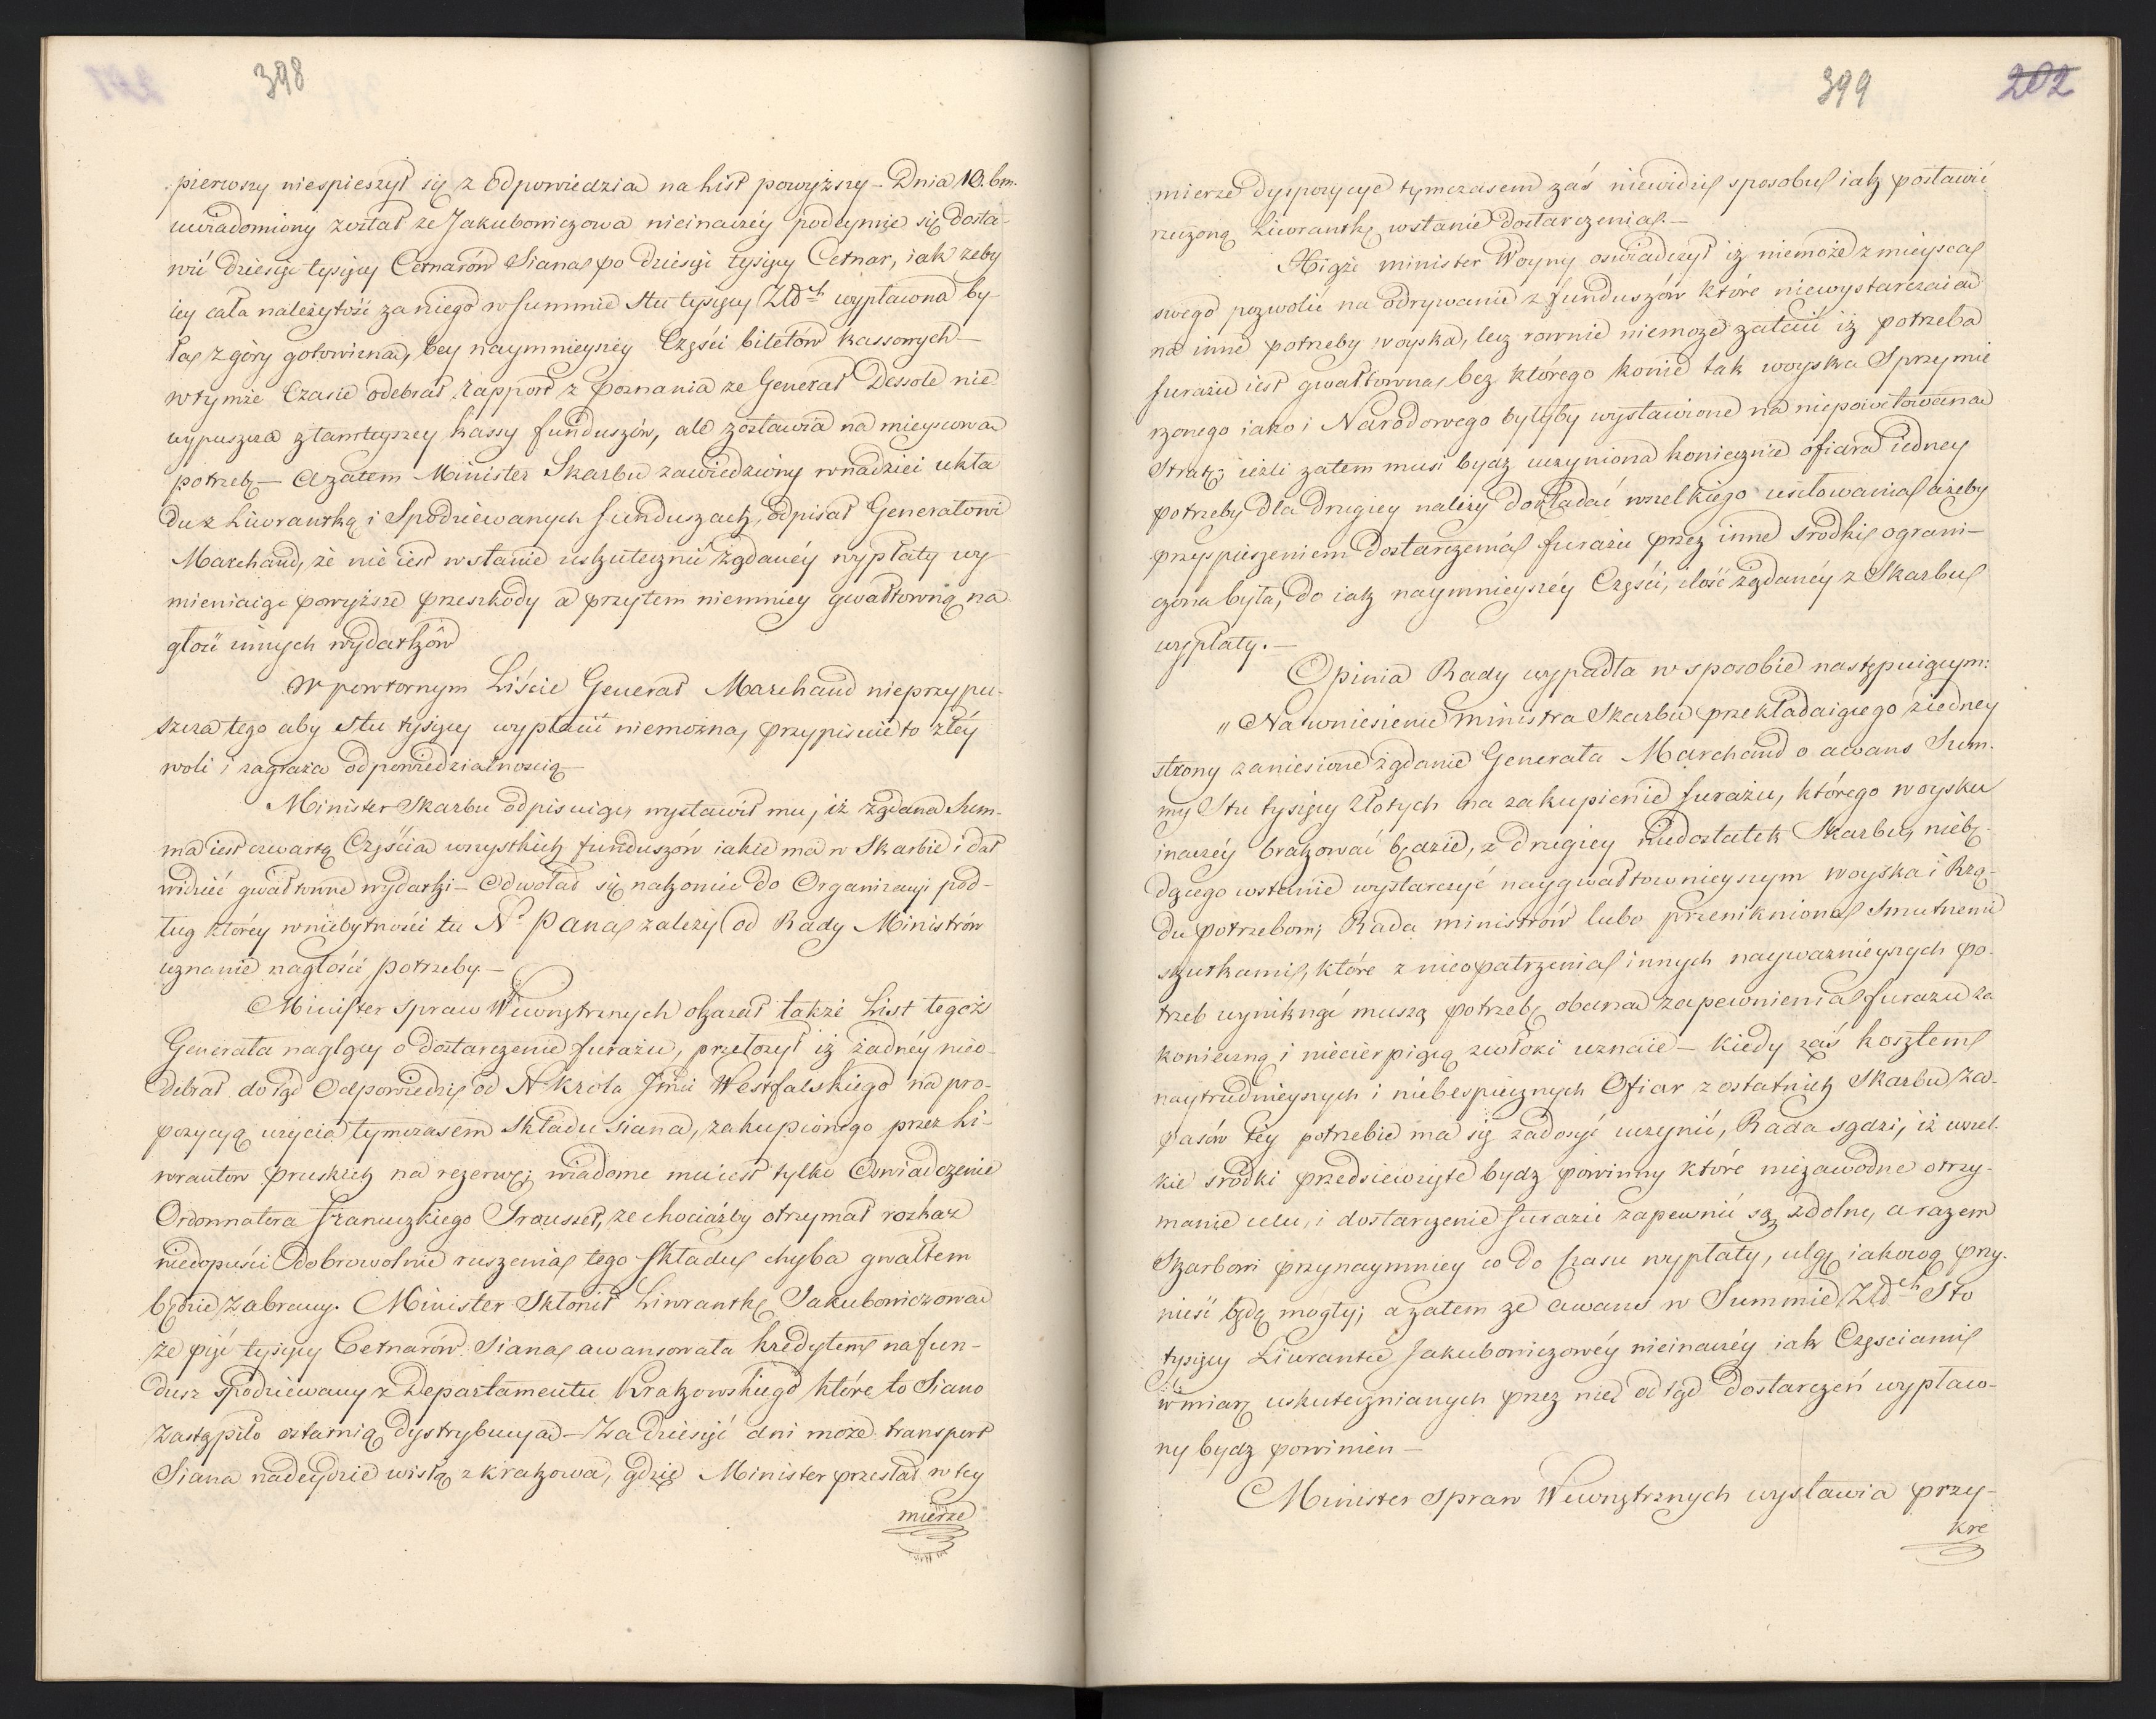 398
pierwszy niespieszył się z odpowiedzia na List powyższy – Dnia 10. bm.
uwiadomiony został ze Jakubowiczowa nieinaczéy podeymie się dosta-
wić dziesięć tysięcy Cetnarów Siana po dziesięć tysięcy Cetnar, iak żeby
iey cała należytość za niego w summie Stu tysięcy Złd^ch wypłacona by-
ła z góry gotowizną, bez naymnieyszéy Części biletów kassowych –
w tymże Czasie odebrał rapport z Poznania ze Generał Dessole nie
wypuszcza z tamteyszey kassy funduszów, ale zostawia na mieyscowa
potrzebę – a zatem Minister Skarbu zawiedziony w nadziei ukła
du z Liwrantką i Spodziewanych funduszach, odpisał Generałowi
Marchand, że nie iest w stanie uskutecznić żądanéy wypłaty wy
mieniaiąc powyższe przeszkody a przytem niemniey gwałtowną na
głość innych wydatków
W powtornym Liście Generał Marchand nieprzypu-
szcza tego aby Stu tysięcy wypłacić niemożna, przypisuie to złéy
woli i zagraża odpowiedzialnoscią –
Minister Skarbu odpisuiąc, wystawił mu, iż żądana Sum-
ma iest czwartą Częścia wszystkich funduszów iakie ma w Skarbie i dał
widzieć gwałtowne wydatki – Odwołał się nakoniec do Organizacyi pod-
ług któréy w niebytności tu N^o Pana zależy od Rady Ministrów
uznanie nagłości potrzeby. –
Minister Spraw Wewnętrznych okazał także List tegoż
Generała naglący o dostarczenie furażu, przełożył iż żadnéy nieo-
debrał dotąd Odpowiedzi od N. Króla Jmci Westfalskiego na pro-
pozycyą użycia tymczasem Składu siana, zakupionego przez Li-
wrantow pruskich na rezerwę; wiadome mu iest tylko Oświadczenie
Ordonnatora francuzkiego Trousset, ze chociażby otrzymał rozkaz
niedopuści dobrowolnie ruszenia tego Składu chyba gwałtem
będzie zabrany. Minister Skłonił Liwrantkę Jakubowiczowa
że pięć tysięcy Cetnarów Siana awansowała kredytem na fun-
dusz Spodziewany z Departamentu Krakowskiego które to Siano
Zastąpiło ostatnią dystrybucya – Za dziesięć dni może transport
Siana nadeydzie wisłą z Krakowa, gdzie Minister przesłał w tey
mierze
399
202
mierze dyspozycye tymczasem zaś niewidzi sposobu iak postawić
rzeczoną Liwrantkę w stanie dostarczenia. –
Xiąże minister Woyny oświadczył iż niemoże z mieysca
swego pozwolić na odrywanie z funduszów które niewystarczaia
na inne potrzeby woyska, lecz rownie niemoże zataić iż potrzeba
furażu iest gwałtowna, bez którego konie tak woyska Sprzymie
rzonego iako i Narodowego byłyby wystawione na niepowetowana
Stratę; ieżli zatem musi bydz uczyniona koniecznie ofiara iedney
potrzeby dla drugiey należy dokładać wszelkiego usiłowania ażeby
przyspieszeniem dostarczenia furażu przez inne srodki ograni-
czona była, do iak naymnieyszéy Części, ilość żądanéy z Skarbu
wypłaty. –
Opinia Rady wypadła w sposobie następuiącym:
„Na wniesienie ministra Skarbu przekładaiącego z iedney
strony zaniesione żądanie Generała Marchand o awans Sum-
my Stu tysięcy złotych na zakupienie furażu, którego woysku
inaczéy brakować będzie, z drugiey niedostatek Skarbu, niebę-
dącego w stanie wystarczyć naygwałtownieyszym woyska i Rzą-
du potrzebom; Rada ministrów lubo przenikniona Smutnemi
skutkami, które z nieopatrzenia innych nayważnieyszych po-
trzeb wyniknąć muszą potrzebę obecna zapewnienia furażu za
konieczną i niecierpiącą zwłoki uznaie – kiedy zaś kosztem
naytrudnieyszych i niebespiecznych Ofiar z ostatnich Skarbu Za-
pasów téy potrzebie ma się zadosyć uczynić, Rada sądzi, iż wszel-
kie srodki przedsiewzięte bydz powinny które niezawodne otrzy-
manie celu, i dostarczenie furażu zapewnić są zdolne, a razem
Skarbowi przynaymniey co do Czasu wypłaty, ulgę iakową przy-
nieść będą mogły; a zatem ze awans w Summie Złd^ch Sto
tysięcy Liwrantce Jakubowiczowéy nieinaczéy iak Częsciami
w miarę uskutecznianych przez nię odtąd dostarczeń wypłaco-
ny bydz powinien –
Minister Spraw Wewnętrznych wystawia przy-
kre